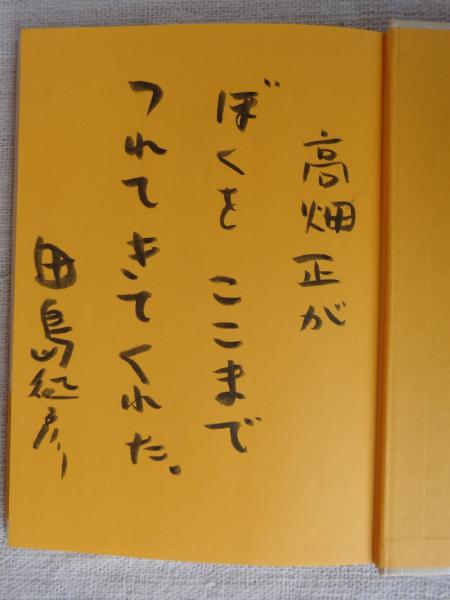 高畑正が
ぼくを ここまで
つれてきてくれた。
田島征彦